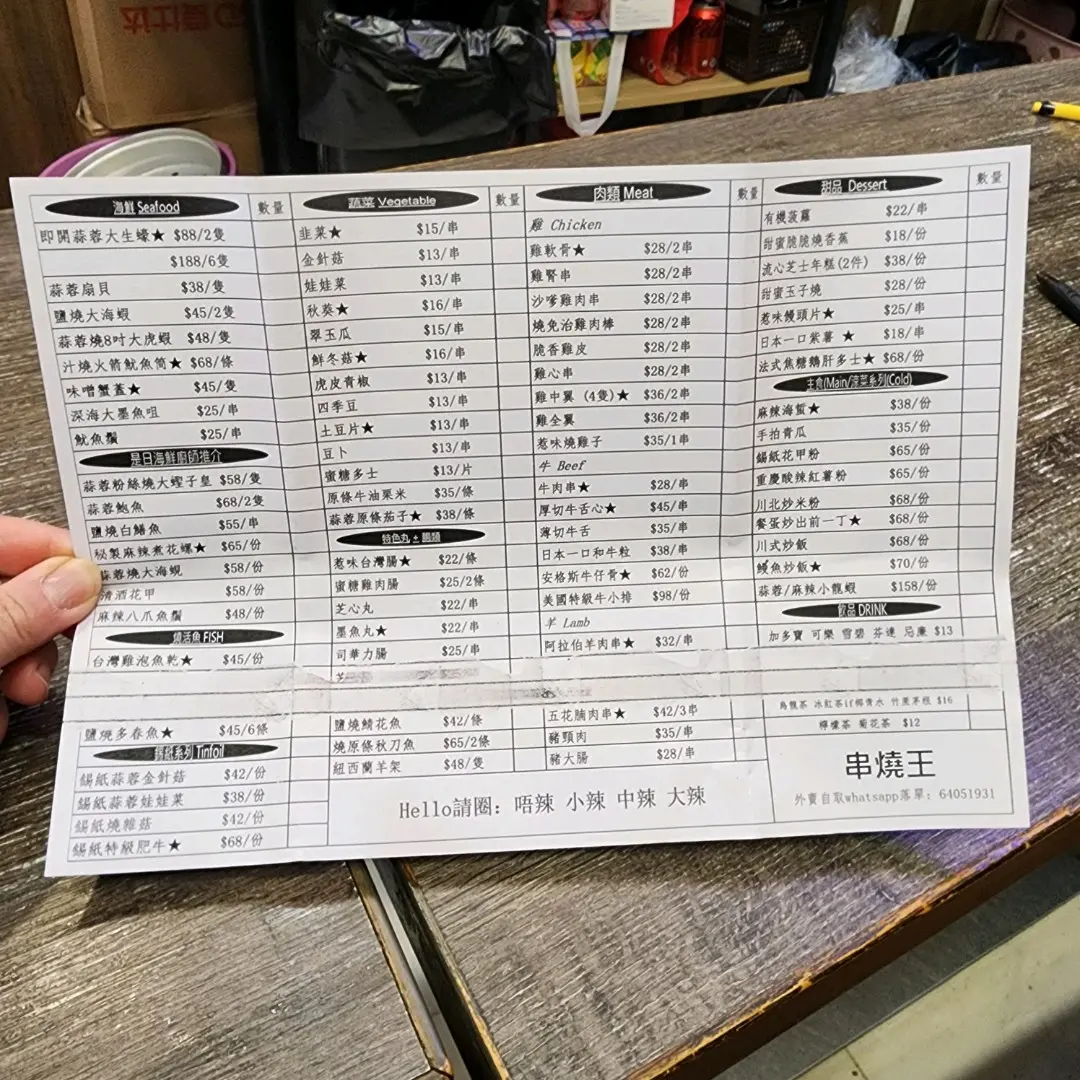 海鮮 Seafood 數量
即開蒜蓉大生蠔★ $88/2隻
$188/6隻
蒜蓉扇貝 $38/隻
鹽燒大海蝦 $45/2隻
蒜蓉燒8吋大虎蝦 $48/隻
汁燒火箭魷魚筒★ $68/條
味噌蟹蓋★ $45/隻
深海大墨魚咀 $25/串
魷魚鬚 $25/串
是日海鮮廚師推介
蒜蓉粉絲燒大蟶子皇 $58/隻
蒜蓉鮑魚 $68/2隻
鹽燒白鱔魚 $55/串
秘製麻辣煮花螺★ $65/份
蒜蓉燒大海蜆 $58/份
清酒花甲 $58/份
麻辣八爪魚鬚 $48/份
燒活魚 FISH
台灣雞泡魚乾★ $45/份
鹽燒多春魚★ $45/6條
錫紙系列 Tinfoil
錫紙蒜蓉金針菇 $42/份
錫紙蒜蓉娃娃菜 $38/份
錫紙燒雜菇 $42/份
錫紙特級肥牛★ $68/份
蔬菜 Vegetable 數量
韭菜★ $15/串
金針菇 $13/串
娃娃菜 $13/串
秋葵★ $16/串
翠玉瓜 $15/串
鮮冬菇★ $16/串
虎皮青椒 $13/串
四季豆 $13/串
土豆片★ $13/串
豆卜 $13/串
蜜糖多士 $13/片
原條牛油粟米 $35/條
蒜蓉原條茄子★ $38/條
特色丸 ± 腸類
惹味台灣腸★ $22/條
蜜糖雞肉腸 $25/2條
芝心丸 $22/串
墨魚丸★ $22/串
司華力腸 $25/串
鹽燒鯖花魚 $42/條
燒原條秋刀魚 $65/2條
紐西蘭羊架 $48/隻
肉類 Meat 數量
雞 Chicken
雞軟骨★ $28/2串
雞腎串 $28/2串
沙爹雞肉串 $28/2串
燒免治雞肉棒 $28/2串
脆香雞皮 $28/2串
雞心串 $28/2串
雞中翼 (4隻)★ $36/2串
雞全翼 $36/2串
惹味燒雞子 $35/1串
牛 Beef
牛肉串★ $28/串
厚切牛舌心★ $45/串
薄切牛舌 $35/串
日本一口和牛粒 $38/串
安格斯牛仔骨★ $62/份
美國特級牛小排 $98/份
羊 Lamb
阿拉伯羊肉串★ $32/串
五花腩肉串★ $42/3串
豬頸肉 $35/串
豬大腸 $28/串
甜品 Dessert 數量
有機菠蘿 $22/串
甜蜜脆脆燒香蕉 $18/份
流心芝士年糕(2件) $38/份
甜蜜玉子燒 $28/份
惹味饅頭片★ $25/串
日本一口紫薯 ★ $18/串
法式焦糖鵝肝多士★ $68/份
主食(Main/涼菜系列(Cold)
麻辣海蜇★ $38/份
手拍青瓜 $35/份
錫紙花甲粉 $65/份
重慶酸辣紅薯粉 $65/份
川北炒米粉 $68/份
餐蛋炒出前一丁★ $68/份
川式炒飯 $68/份
鰻魚炒飯★ $70/份
蒜蓉/麻辣小龍蝦 $158/份
飲品 DRINK
加多寶 可樂 雪碧 芬達 忌廉 $13
烏龍茶 冰紅茶if椰青水 竹蔗茅根 $16
檸檬茶 菊花茶 $12
串燒王
外賣自取whatsapp落單: 64051931
Hello請圈: 唔辣 小辣 中辣 大辣